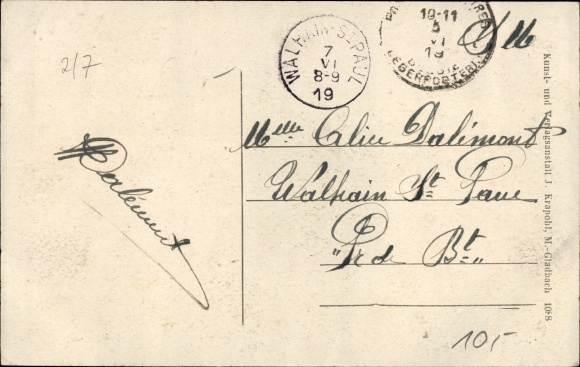 2/7
WALHAIN-ST PAUL
7
VI
8-9
19
10-11
5
VI
19
LEGERPOSTERIJ
S.M
Melle Alice Dalimont
Walhain St Paul
"Pr de Bt"
Dalimont
10,-
Kunst- und Verlagsanstalt J. Krapohl, M.-Gladbach 108